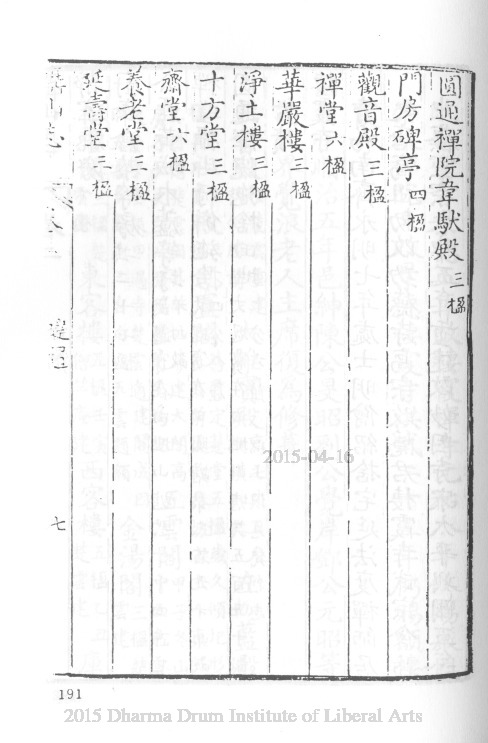 圓通禪院韋馱殿三楹
門房碑亭四楹
觀音殿三楹
禪堂六楹
華嚴樓三楹
淨土樓三楹
十方堂三楹
齋堂六楹
養老堂三楹
延壽堂三楹
志
七
191
2015-04-16
2015 Dharma Drum Institute of Liberal Arts